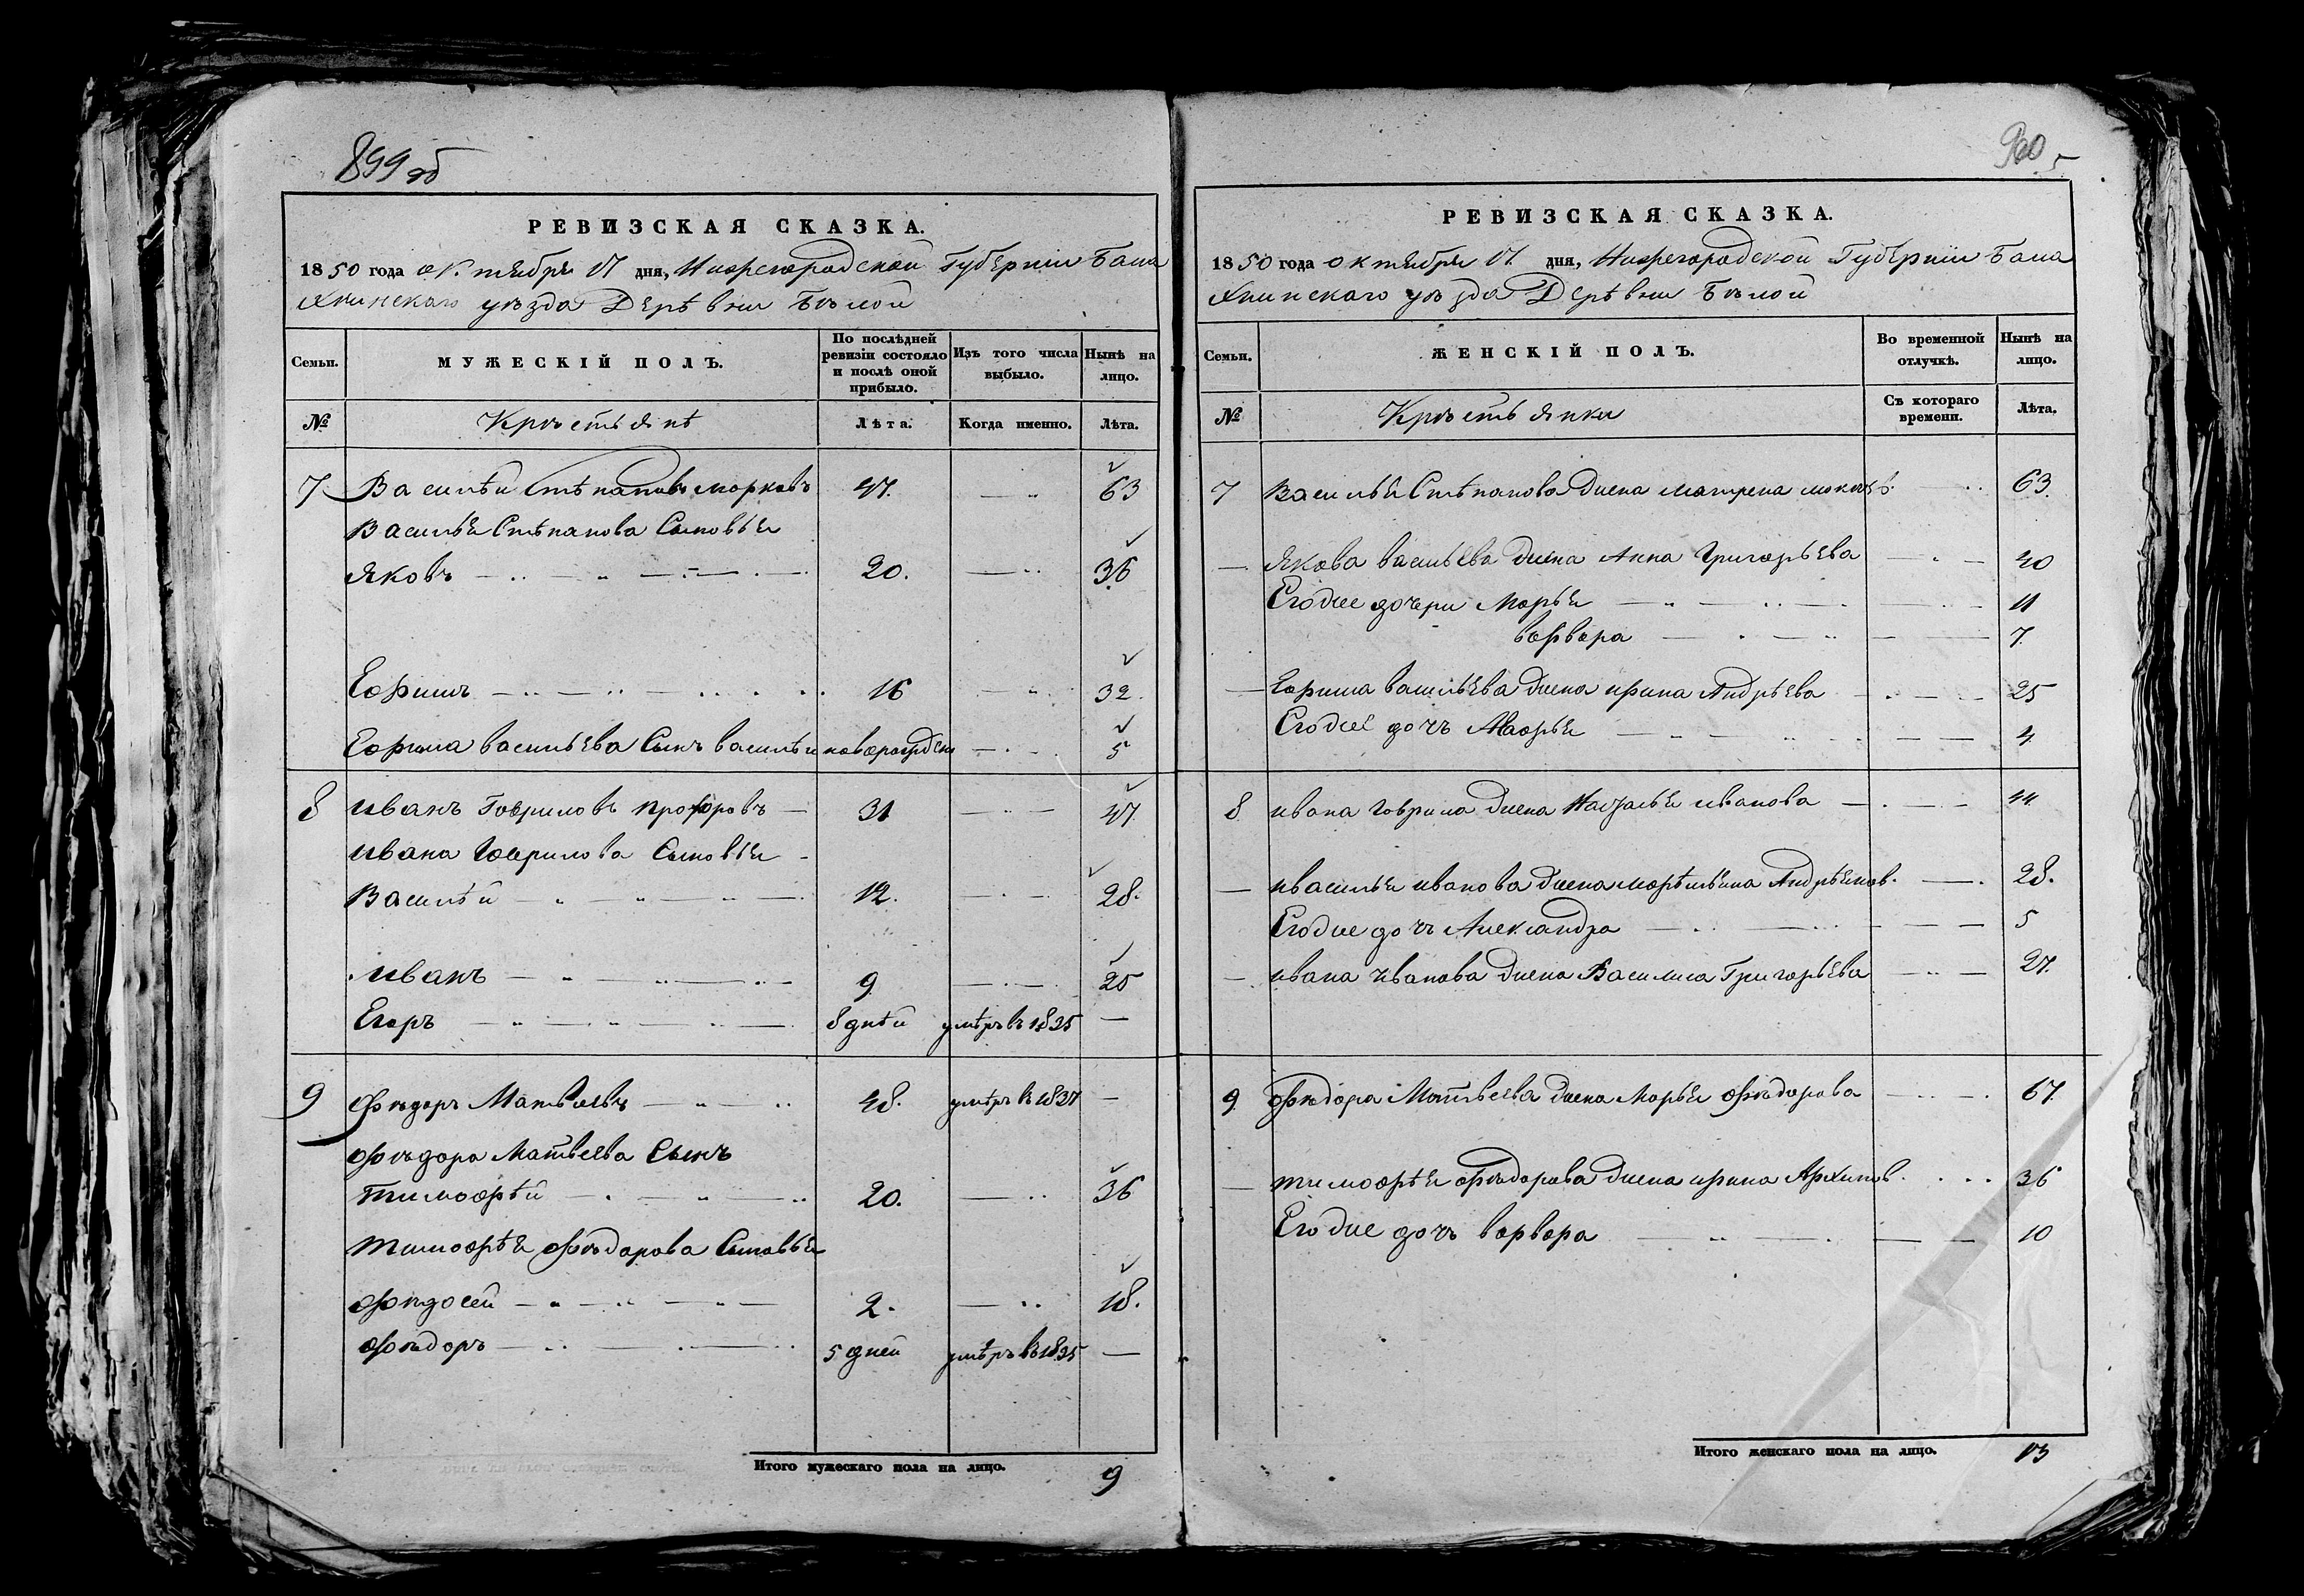 899 об
РЕВИЗСКАЯ СКАЗКА.
1850 года октября 17 дня, Нижегородской Губернии Бала
хнинскаго уѣзда Деревни Бѣлой
Семьи.
МУЖЕСКІЙ ПОЛЪ.
По послѣдней ревизіи состояло и послѣ оной прибыло.
Изъ того числа выбыло.
Нынѣ на лицо.
№
Крестьяне
Лѣта.
Когда именно.
Лѣта.
7 Василей Степановъ Марковъ 47. 63
Василья Степанова Сыновья
Яковъ 20. 36
Ефимъ 16 32.
Ефима васильева Сынъ василей новорожден 5
8 иванъ Гавриловъ прохоровъ 31 47.
ивана Гаврилова Сыновья
Василей 12. 28.
иванъ 9 25
Егоръ 8 дней умеръ въ 1835 —
9 Фѣдоръ Матвеевъ 48. умеръ в 1837 —
Фѣдора Матвеева Сынъ
Тимофей 20. 36
Тимофея Фѣдорова Сыновья
Федосей 2. 18.
Фѣдоръ 5 дней умеръ въ 1835 —
Итого мужескаго пола на лицо. 9
900 5
РЕВИЗСКАЯ СКАЗКА.
1850 года октября 17. дня, Нижегородской Губернии Бала
хнинскаго уѣзда Деревни Бѣлой
Семьи.
ЖЕНСКІЙ ПОЛЪ.
Во временной отлучкѣ.
Нынѣ на лицо.
№
Крестьянки
Съ котораго времени.
Лѣта.
7 Василья Степанова жена матрена 63.
— Якова васильева жена Анна Григорьева 40
Егоже дочери Марья 11
варвара 7.
— Ефима васильева жена ирина Андрьева 25
Егоже дочъ Марья 4
8 ивана гаврила жена Наталья иванова 44
— василья иванова жена Андреянов. 28.
Егоже дочъ Александра 5
— ивана иванова жена Василиса Григорьева 27.
9. Фѣдора Матвеева жена Марья Фѣдорова 67.
— тимофея Фѣдорова жена ирина Архипов. 36
Егоже дочъ варвара 10
Итого женскаго пола на лицо. 13